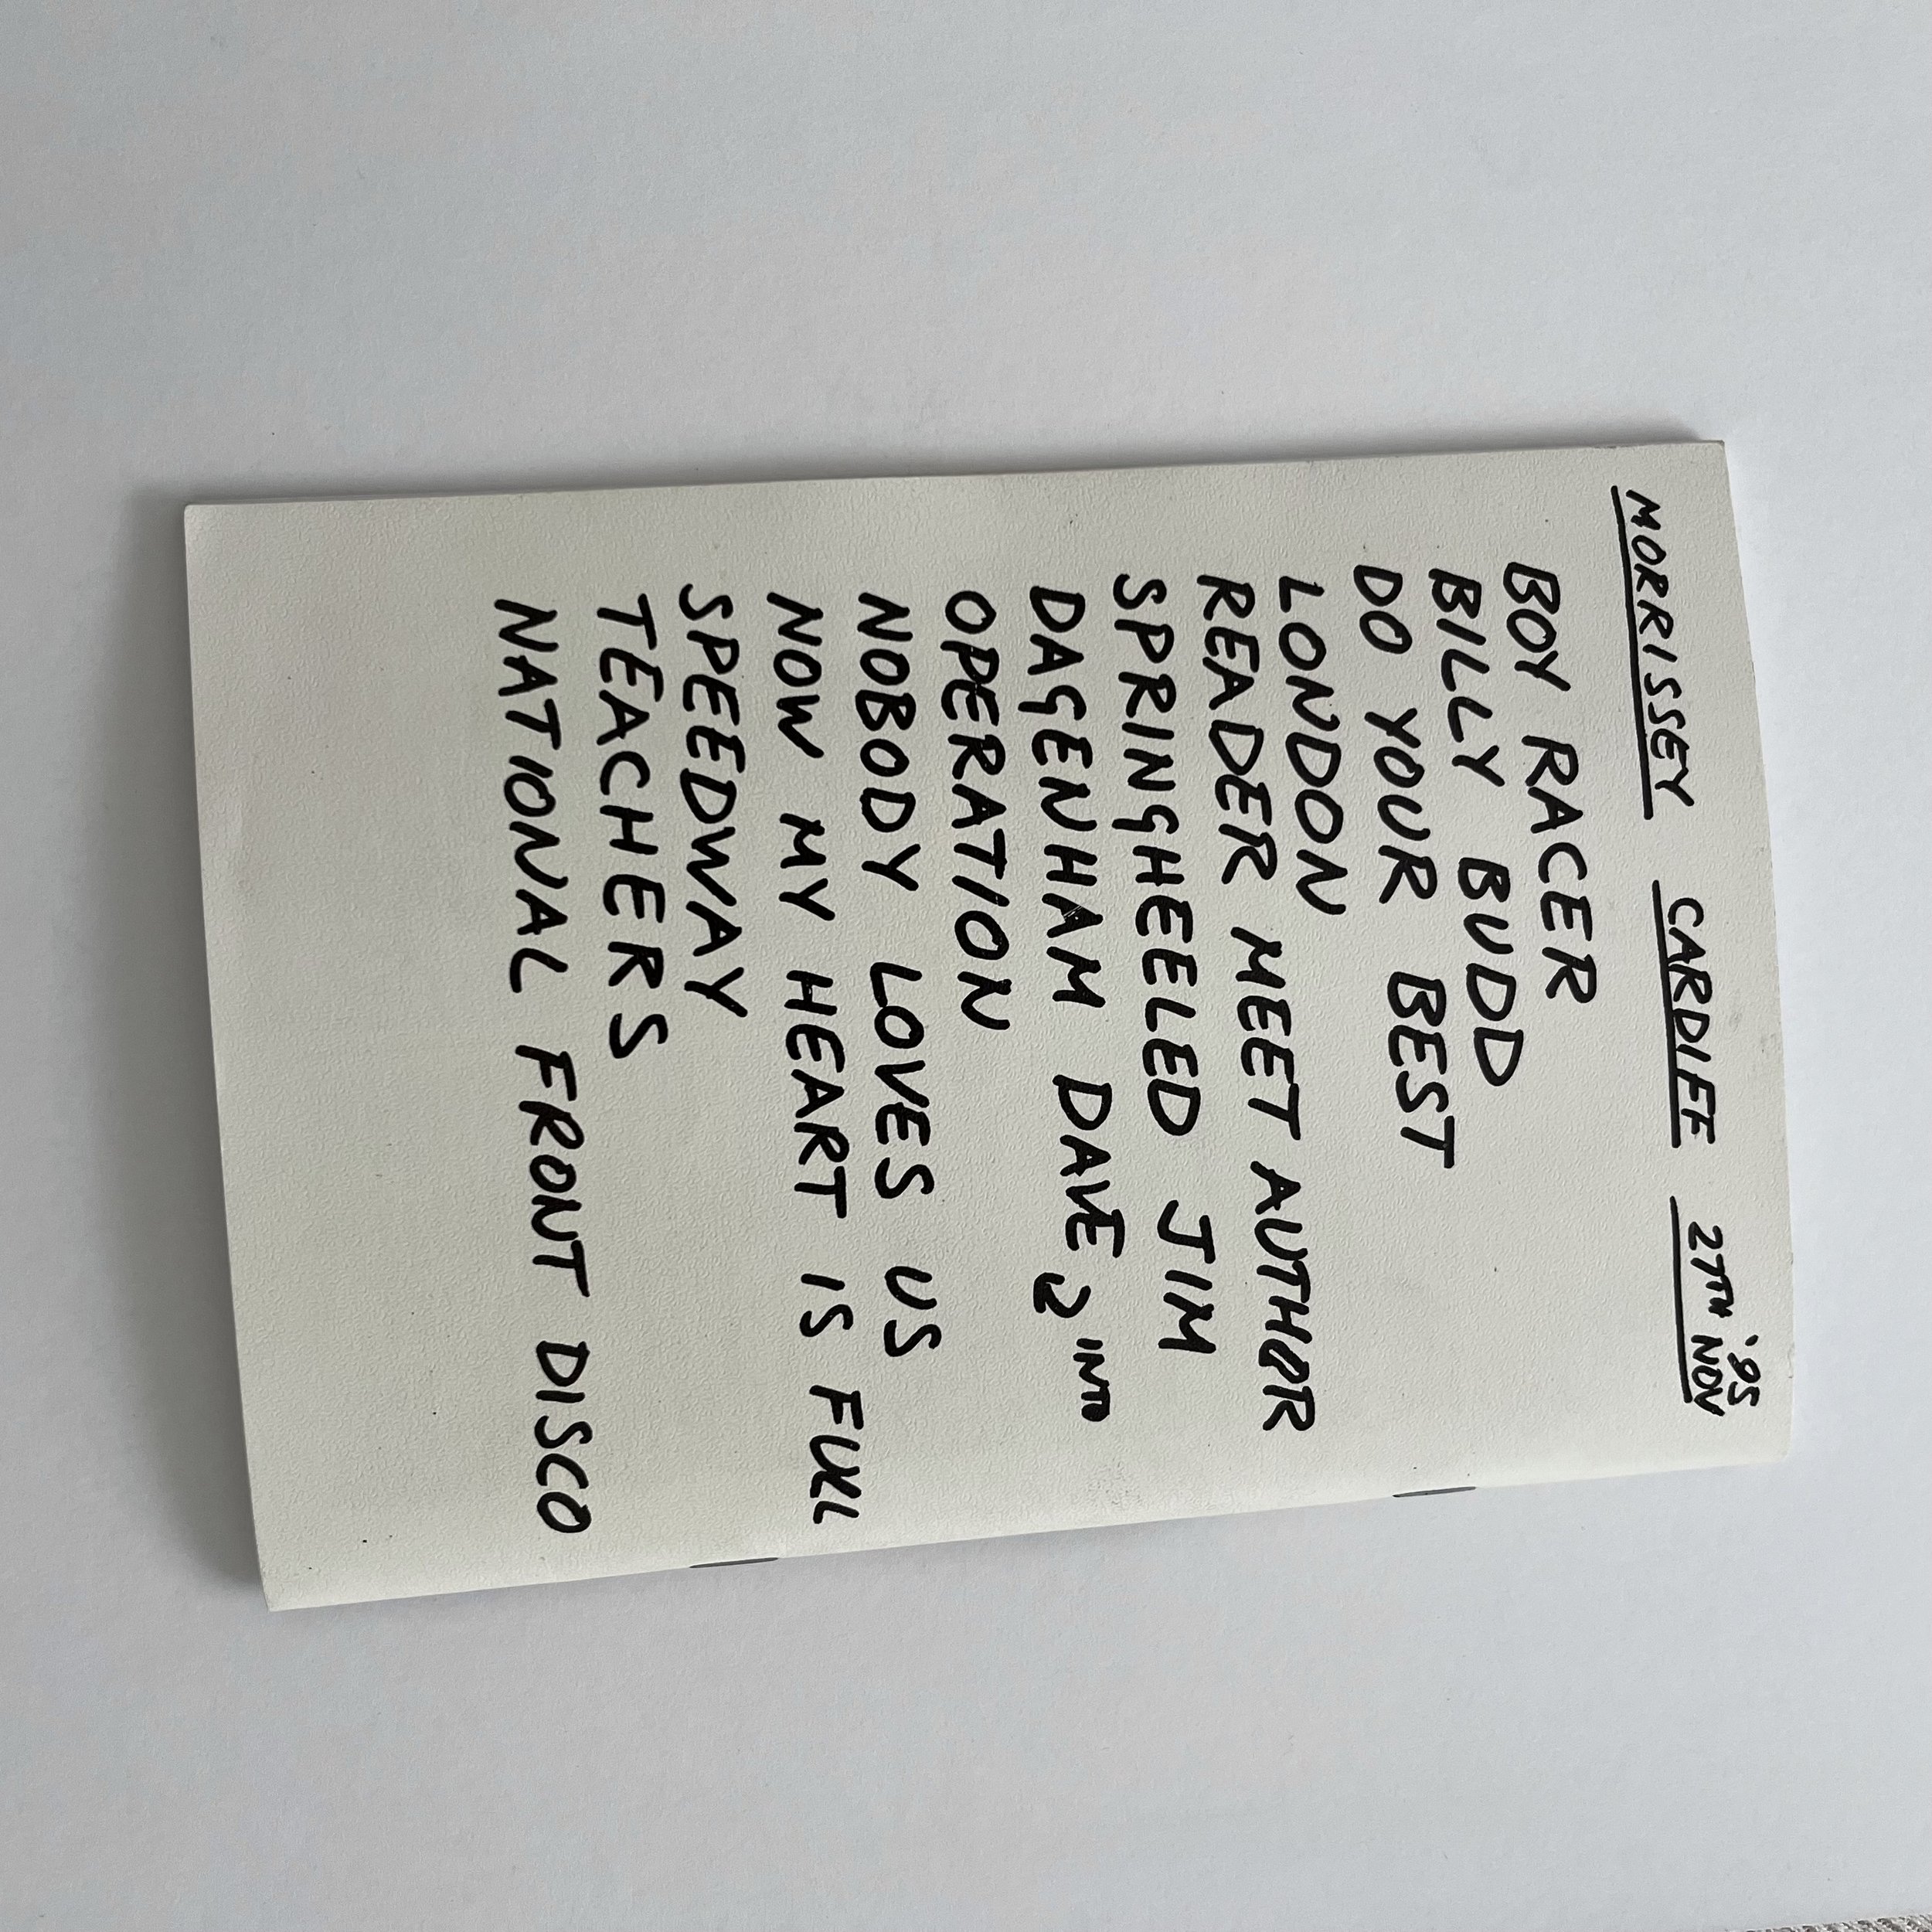 MORRISSEY CARDIFF 27TH NOV '95
BOY RACER
BILLY BUDD
DO YOUR BEST
LONDON
READER MEET AUTHOR
SPRINGHEELED JIM
DAGENHAM DAVE INTO
OPERATION
NOBODY LOVES US
NOW MY HEART IS FULL
SPEEDWAY
TEACHERS
NATIONAL FRONT DISCO